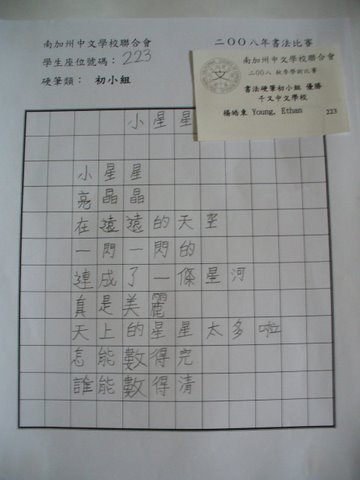 南加州中文學校聯合會
二〇〇八年書法比賽
學生座位號碼：223
硬筆類： 初小組
南加州中文學校聯合會
二〇〇八 秋季學術比賽
文
書法硬筆初小組 優勝
千文中文學校
楊皓東 Young, Ethan 223
小星星
小星星
亮晶晶
在遠遠的天空
一閃一閃的
連成了一條星河
真是美麗
天上的星星太多啦
怎能數得完
誰能數得清